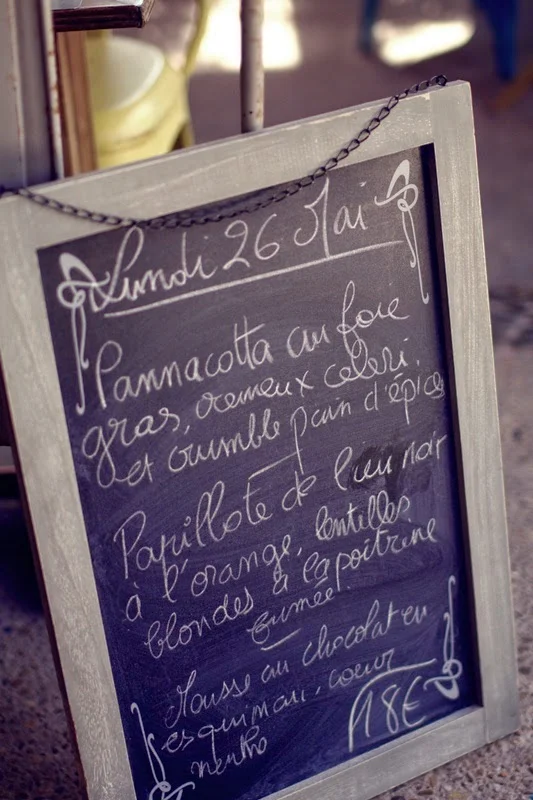 Lundi 26 Mai
Pannacotta au foie
gras, crémeux céleri,
et crumble pain d'épices
Papillote de lieu noir
à l'orange, lentilles
blondes à la poitrine
fumée.
Mousse au chocolat en
esquimau, coeur
menthe
18€